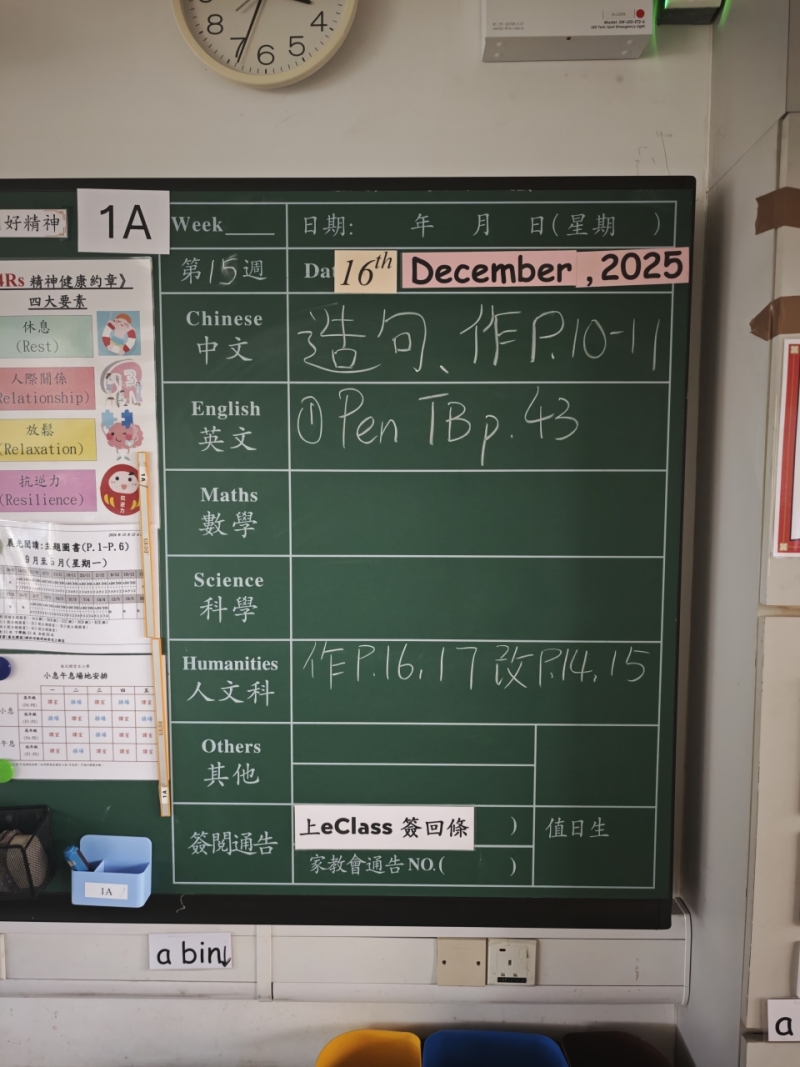 8
7
6
5
4
好精神
1A
Week
日期: 年 月 日(星期 )
第15週
16th December , 2025
4Rs 精神健康約章》
四大要素
休息
(Rest)
人際關係
Relationship)
放鬆
(Relaxation)
抗逆力
(Resilience)
Chinese
中文
造句、作P.10-11
English
英文
① Pen TB p.43
Maths
數學
Science
科學
Humanities
人文科
作P.16,17 改P.14,15
Others
其他
簽閱通告
上eClass 簽回條 )
家教會通告NO.( )
值日生
晨光閱讀:主題圖書(P.1-P.6)
小息午息場地安排
1A
a bin↓
a